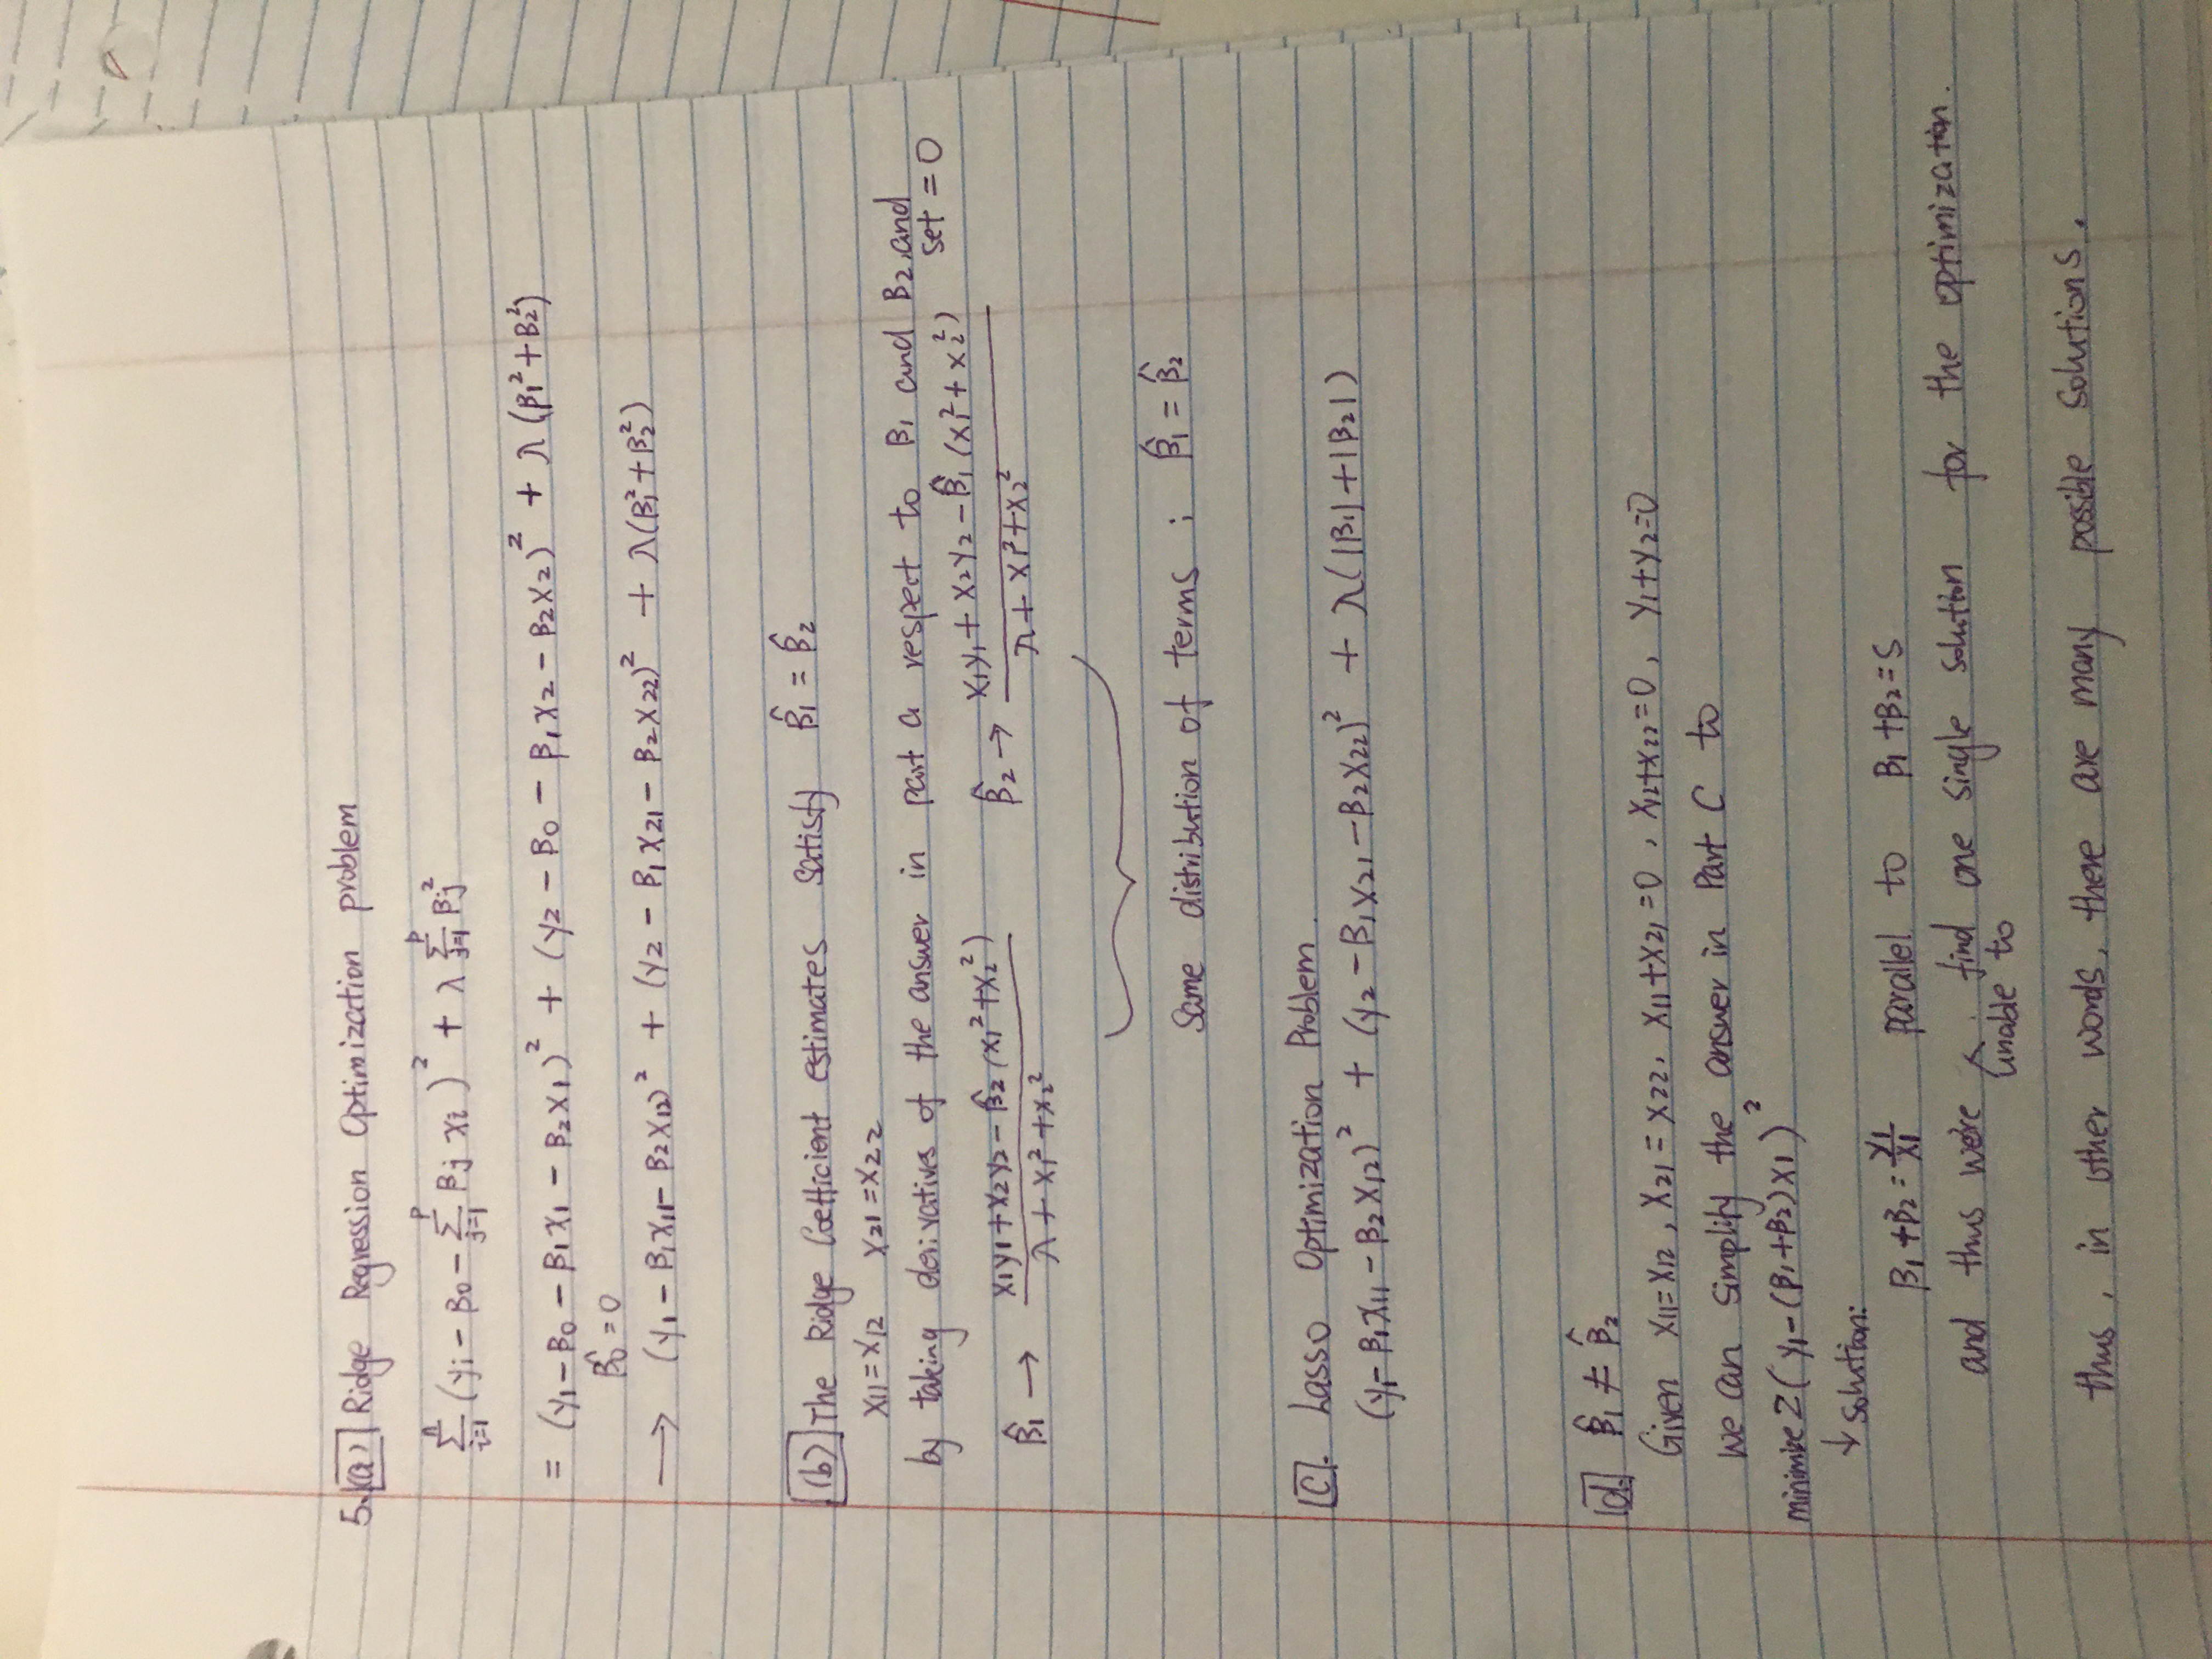 5. (a) Ridge Regression Optimization problem
∑_{i=1}^{n} (yi − β0 − ∑_{j=1}^{p} βj xi)² + λ ∑_{j=1}^{p} βj²
= (y1 − β0 − β1x1 − β2x1)² + (y2 − β0 − β1x2 − β2x2)² + λ(β1² + β2²)
β̂0 = 0
→ (y1 − β1x11 − β2x12)² + (y2 − β1x21 − β2x22)² + λ(β1² + β2²)
(b) The Ridge Coefficient estimates satisfy β̂1 = β̂2
x11 = x12 x21 = x22
by taking derivatives of the answer in part a respect to β1 and β2, and set = 0
β̂1 → (x1y1 + x2y2 − β̂2(x1² + x2²)) / (λ + x1² + x2²) β̂2 → (x1y1 + x2y2 − β̂1(x1² + x2²)) / (λ + x1² + x2²)
Same distribution of terms ; β̂1 = β̂2
(c). Lasso Optimization Problem.
(y1 − β1x11 − β2x12)² + (y2 − β1x21 − β2x22)² + λ(|β1| + |β2|)
(d.) β̂1 ≠ β̂2
Given x11 = x12, x21 = x22, x11 + x21 = 0, x12 + x22 = 0, y1 + y2 = 0
we can simplify the answer in Part C to
minimize 2(y1 − (β1 + β2)x1)²
↓ Solution:
β1 + β2 = y1/x1 parallel to β1 + β2 = S
and thus we're unable to find one single solution for the optimization.
thus, in other words, there are many possible solutions.